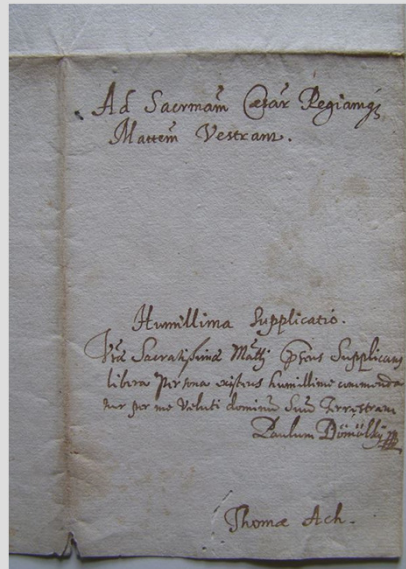 Ad Sacrmam Cæsar Regiamqs
Mattem Vestram.
Humillima Supplicatio.
Vræ Sacratissimæ Matti Supplicans
libera persona existens humillime commenda
tur per me veluti dominum Suum Terrestram
Paulum Dömölky
Thomæ Ach.